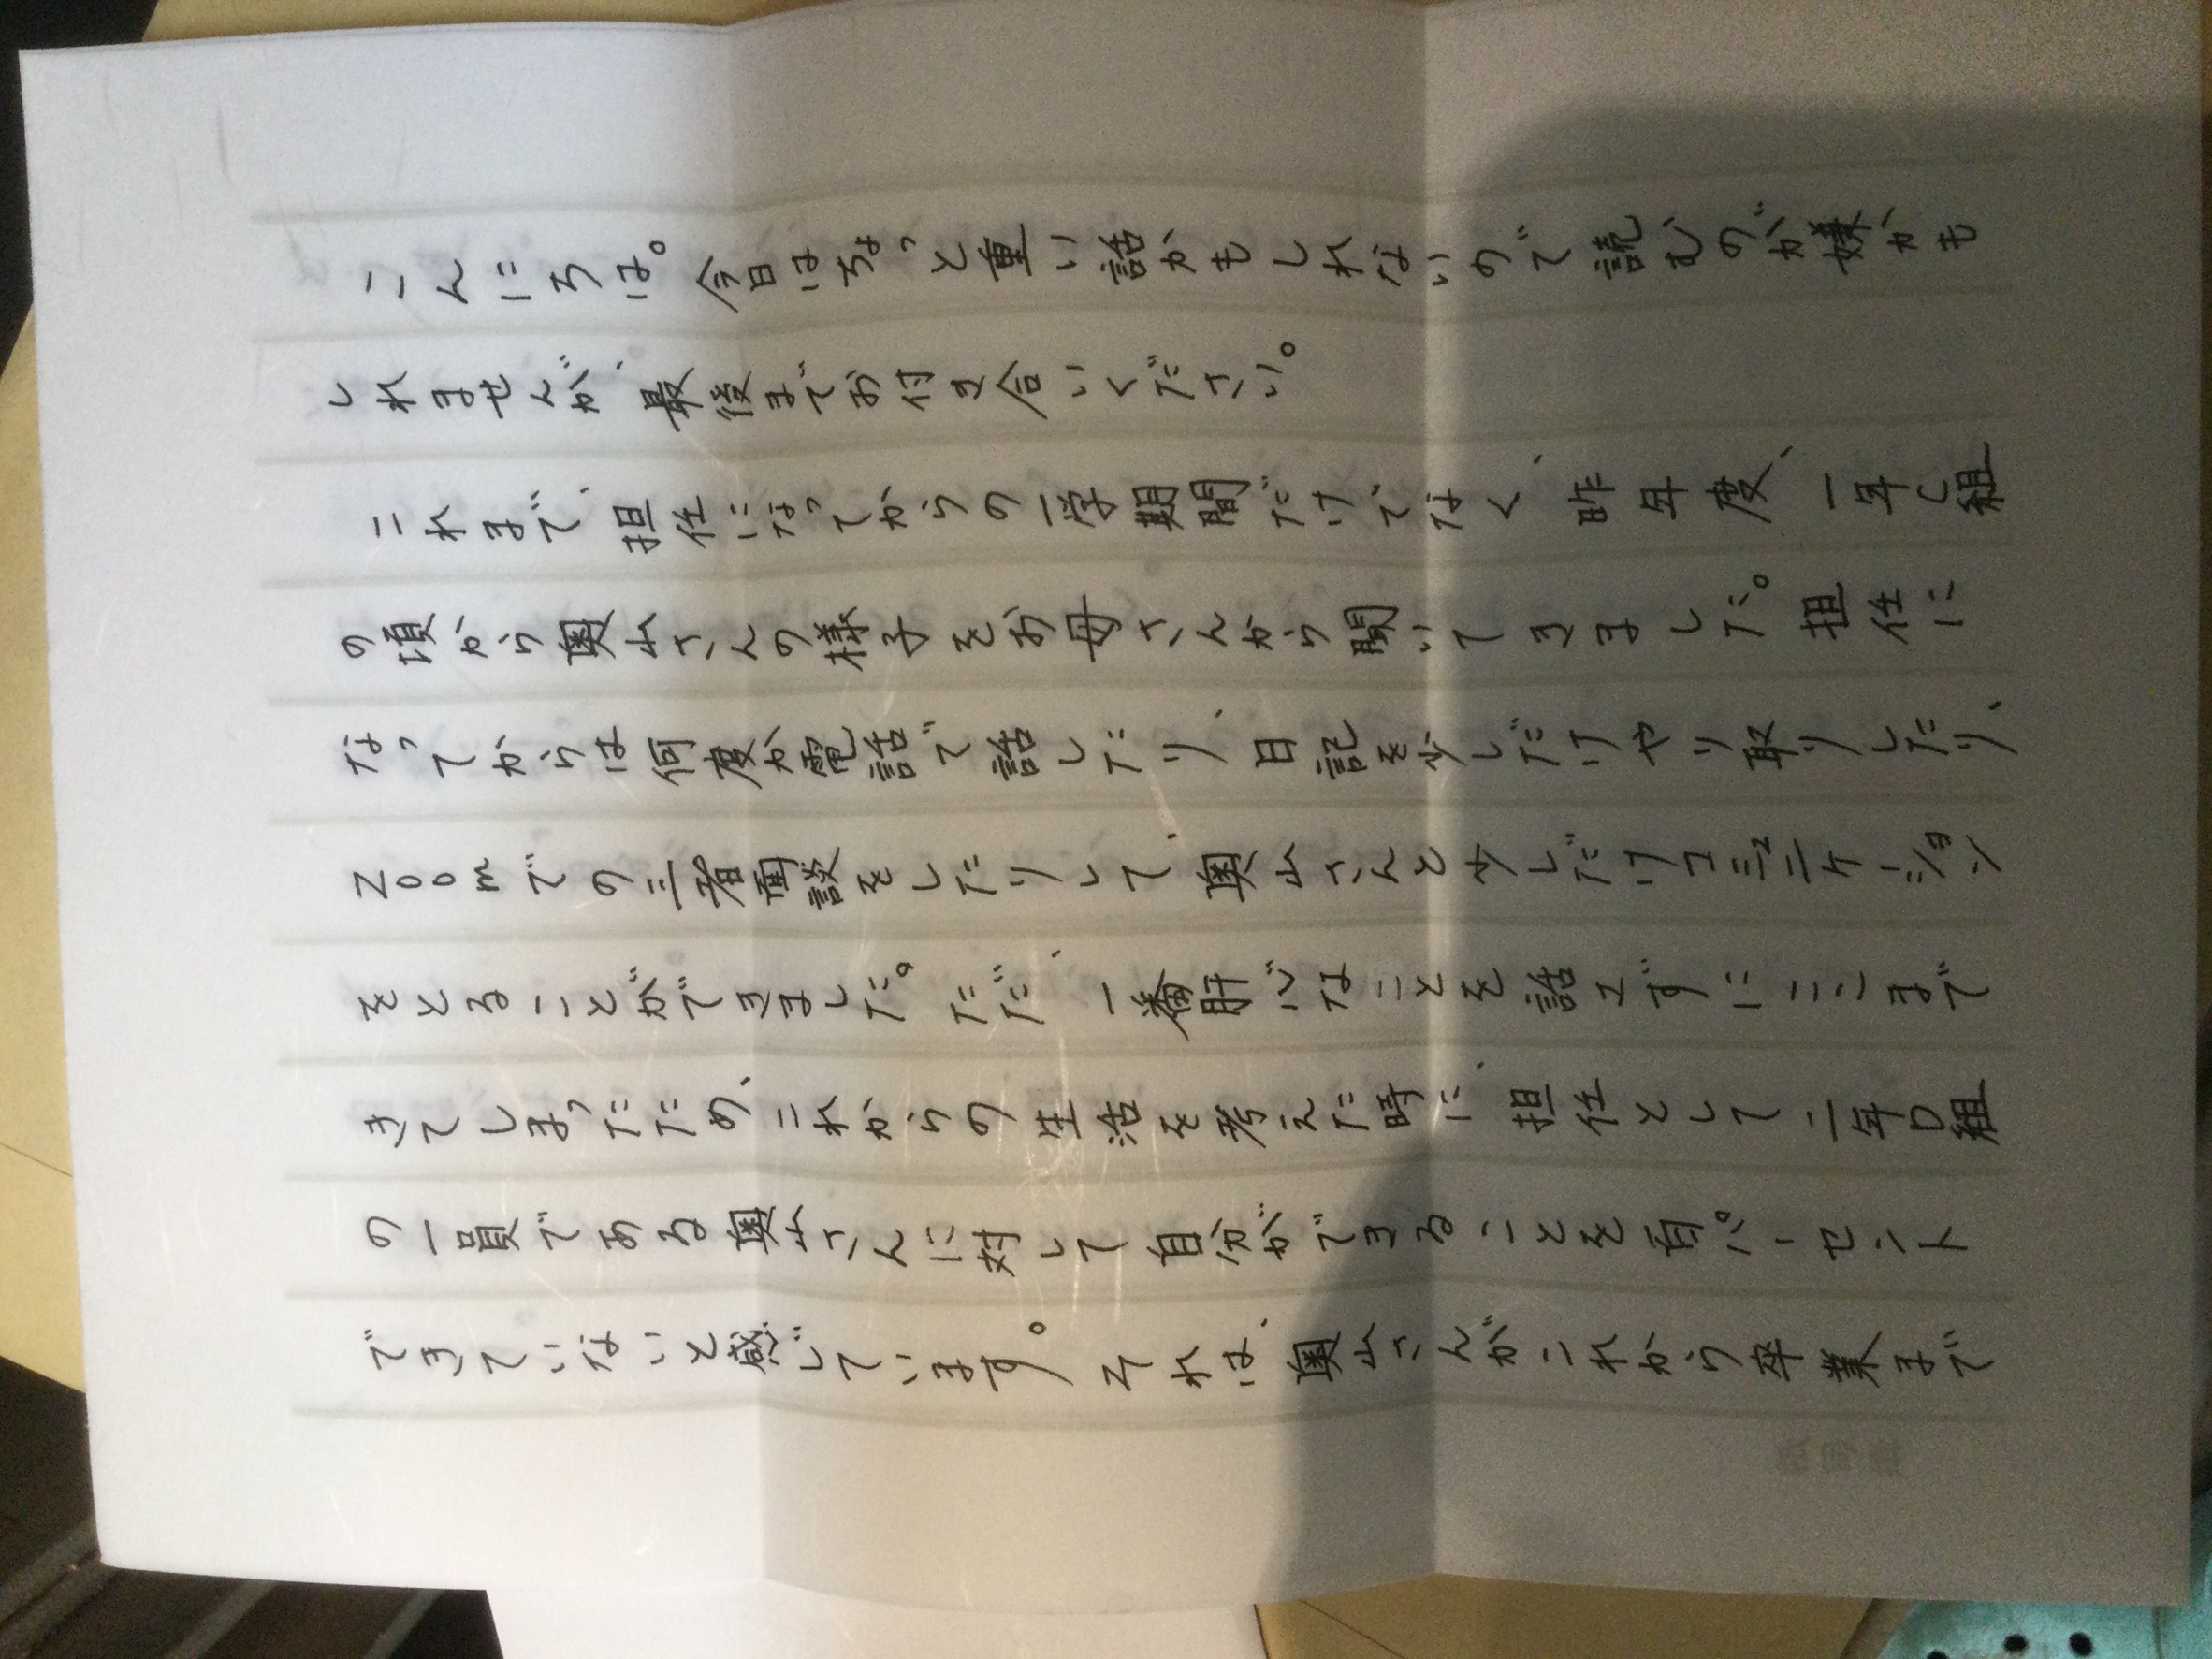 こんにちは。今日はちょっと重い話かもしれないので読むのが嫌かも
しれませんが、最後までお付き合いください。
これまで、担任になってからの一学期間だけでなく、昨年度、一年C組
の頃から奥山さんの様子をお母さんから聞いてきました。担任に
なってからは何度か電話で話したり、日記を少しだけやり取りしたり、
Zoomでの三者面談をしたりして、奥山さんと少しだけコミュニケーション
をとることができました。ただ、一番肝心なことを話せずにここまで
きてしまったため、これからの生活を考えた時に、担任として二年D組
の一員である奥山さんに対して自分ができることを百パーセント
できていないと感じています。それは、奥山さんがこれから卒業まで